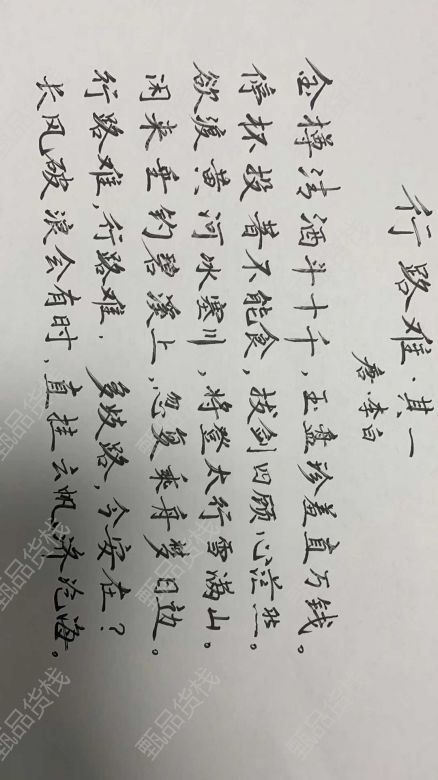 行路难·其一
唐·李白
金樽清酒斗十千，玉盘珍羞直万钱。
停杯投箸不能食，拔剑四顾心茫然。
欲渡黄河冰塞川，将登太行雪满山。
闲来垂钓碧溪上，忽复乘舟梦日边。
行路难，行路难，多歧路，今安在？
长风破浪会有时，直挂云帆济沧海。
甄品货栈
甄品货栈
甄品货栈
甄品货栈
甄品货栈
甄品货栈